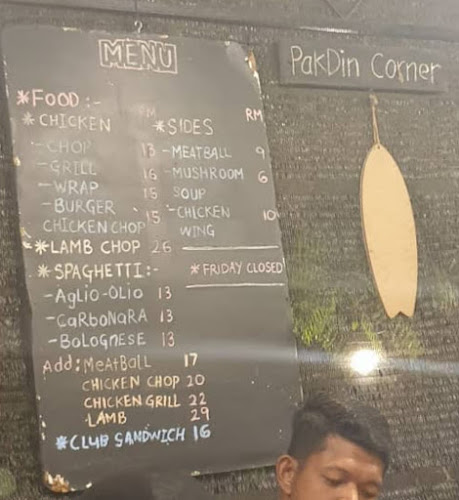 MENU
PakDin Corner
*FOOD :-
RM
*CHICKEN RM
-CHOP 13
-GRILL 16
-WRAP 15
-BURGER CHICKEN CHOP 15
*LAMB CHOP 26
*SIDES
-MEATBALL 9
-MUSHROOM SOUP 6
-CHICKEN WING 10
*FRIDAY CLOSED
*SPAGHETTI:-
-AGLIO-OLIO 13
-CARBONARA 13
-BOLOGNESE 13
Add: MEATBALL 17
CHICKEN CHOP 20
CHICKEN GRILL 22
LAMB 29
*CLUB SANDWICH 16